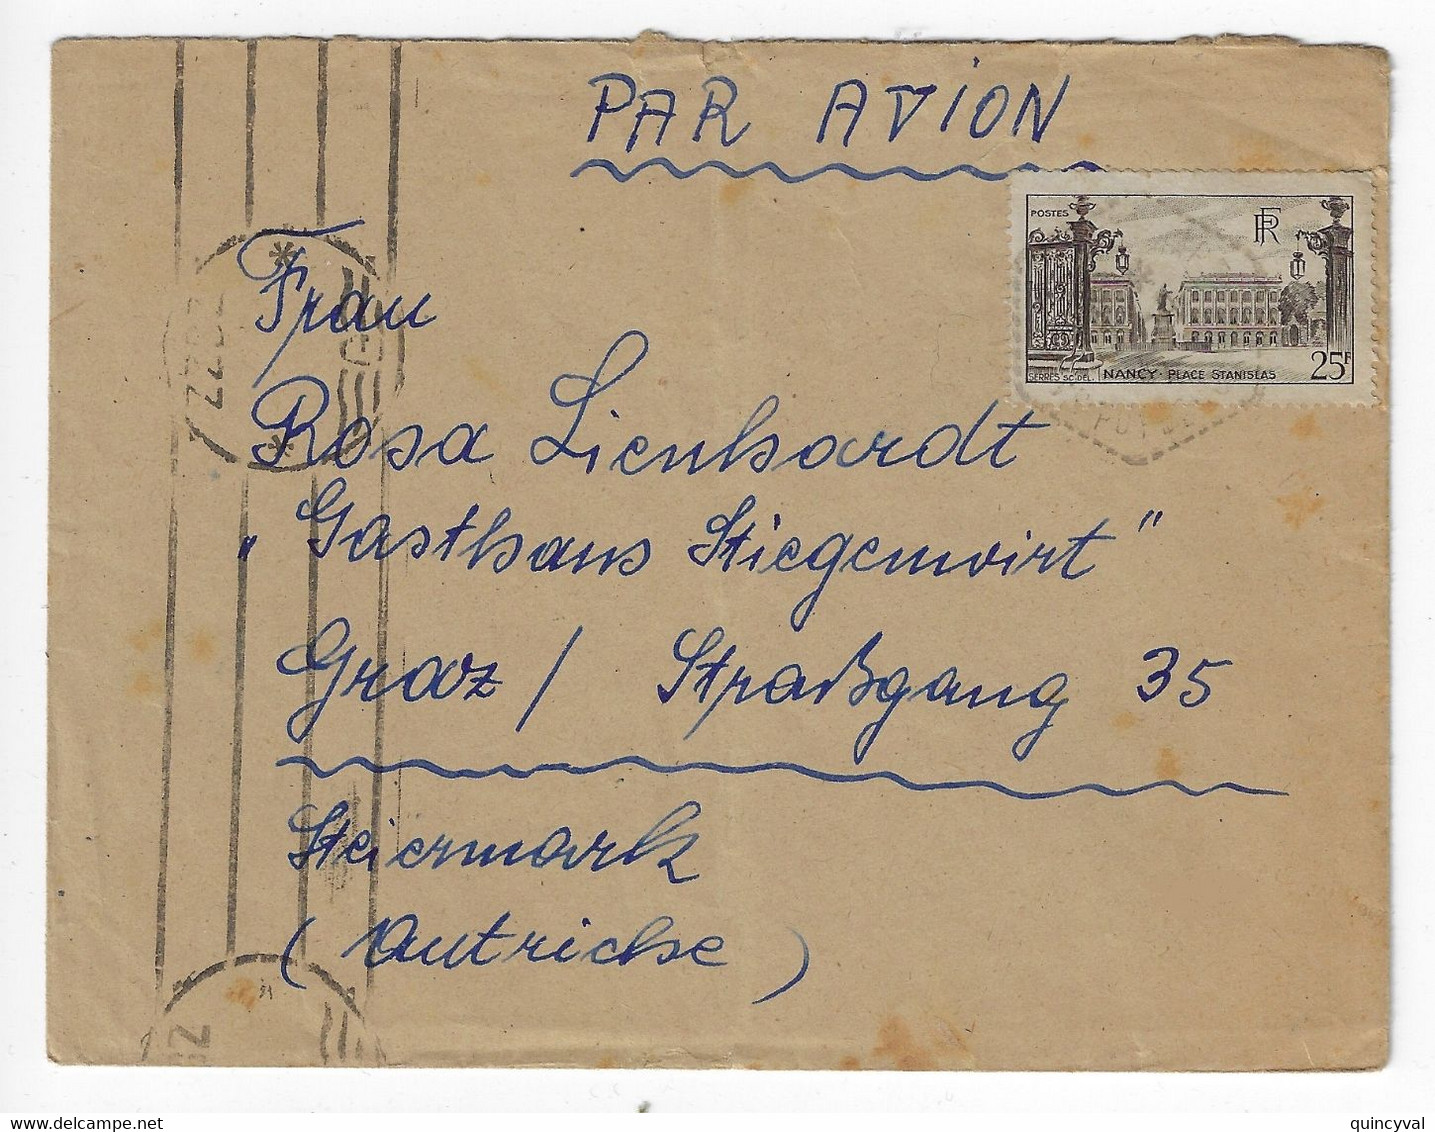 PAR AVION
POSTES
RF
SERRES SC. DEL. NANCY - PLACE STANISLAS 25F
Frau
Rosa Lienhardt
„Gasthaus Stiegenwirt“
Graz / Straßgang 35
Steiermark
(Autriche)
quincyval